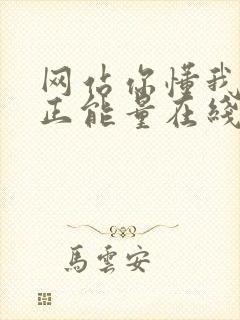 网站你懂我
正能量在线
馬雲安